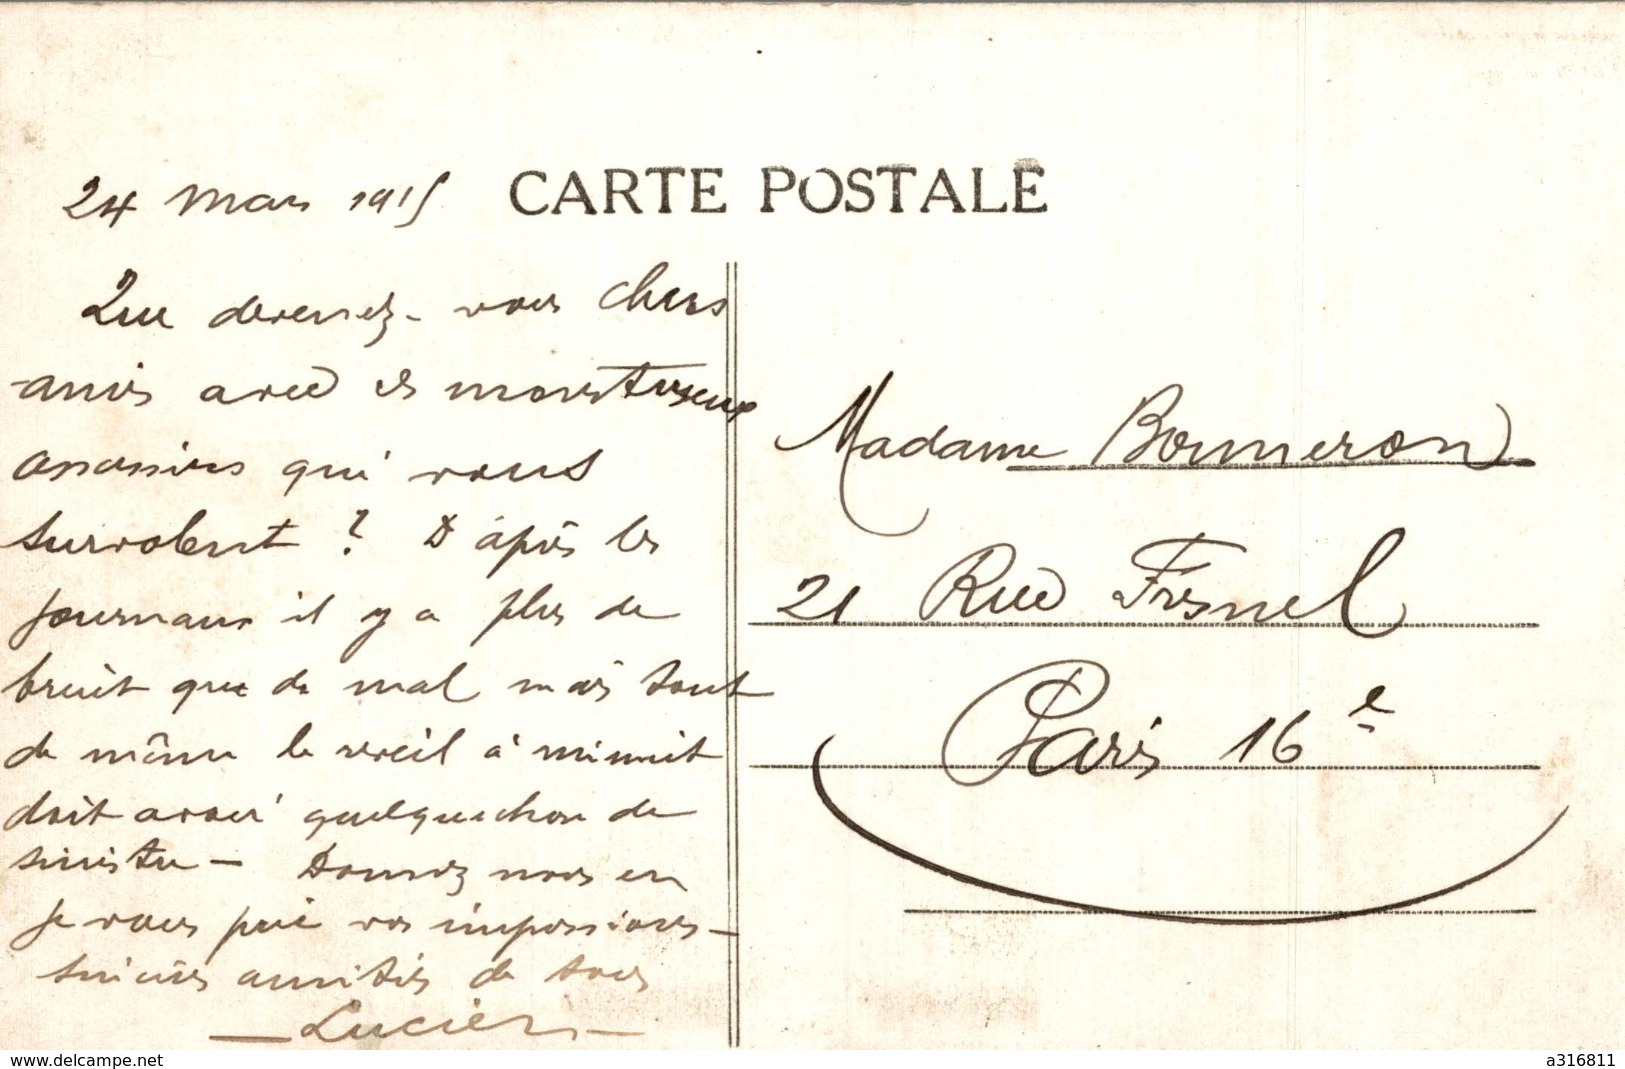 CARTE POSTALE
24 Mars 1915
Que devenez-vous chers
amis avec ces monstrueux
assassins qui vous
survolent ? D'après les
journaux il y a plus de
bruit que de mal mais tout
de même le réveil à minuit
doit avoir quelque chose de
sinistre — Donnez nous en
je vous prie vos impressions —
sincères amitiés de tous
— Lucien —
Madame Bonneron
21 Rue Fresnel
Paris 16e
www.delcampe.net
a316811